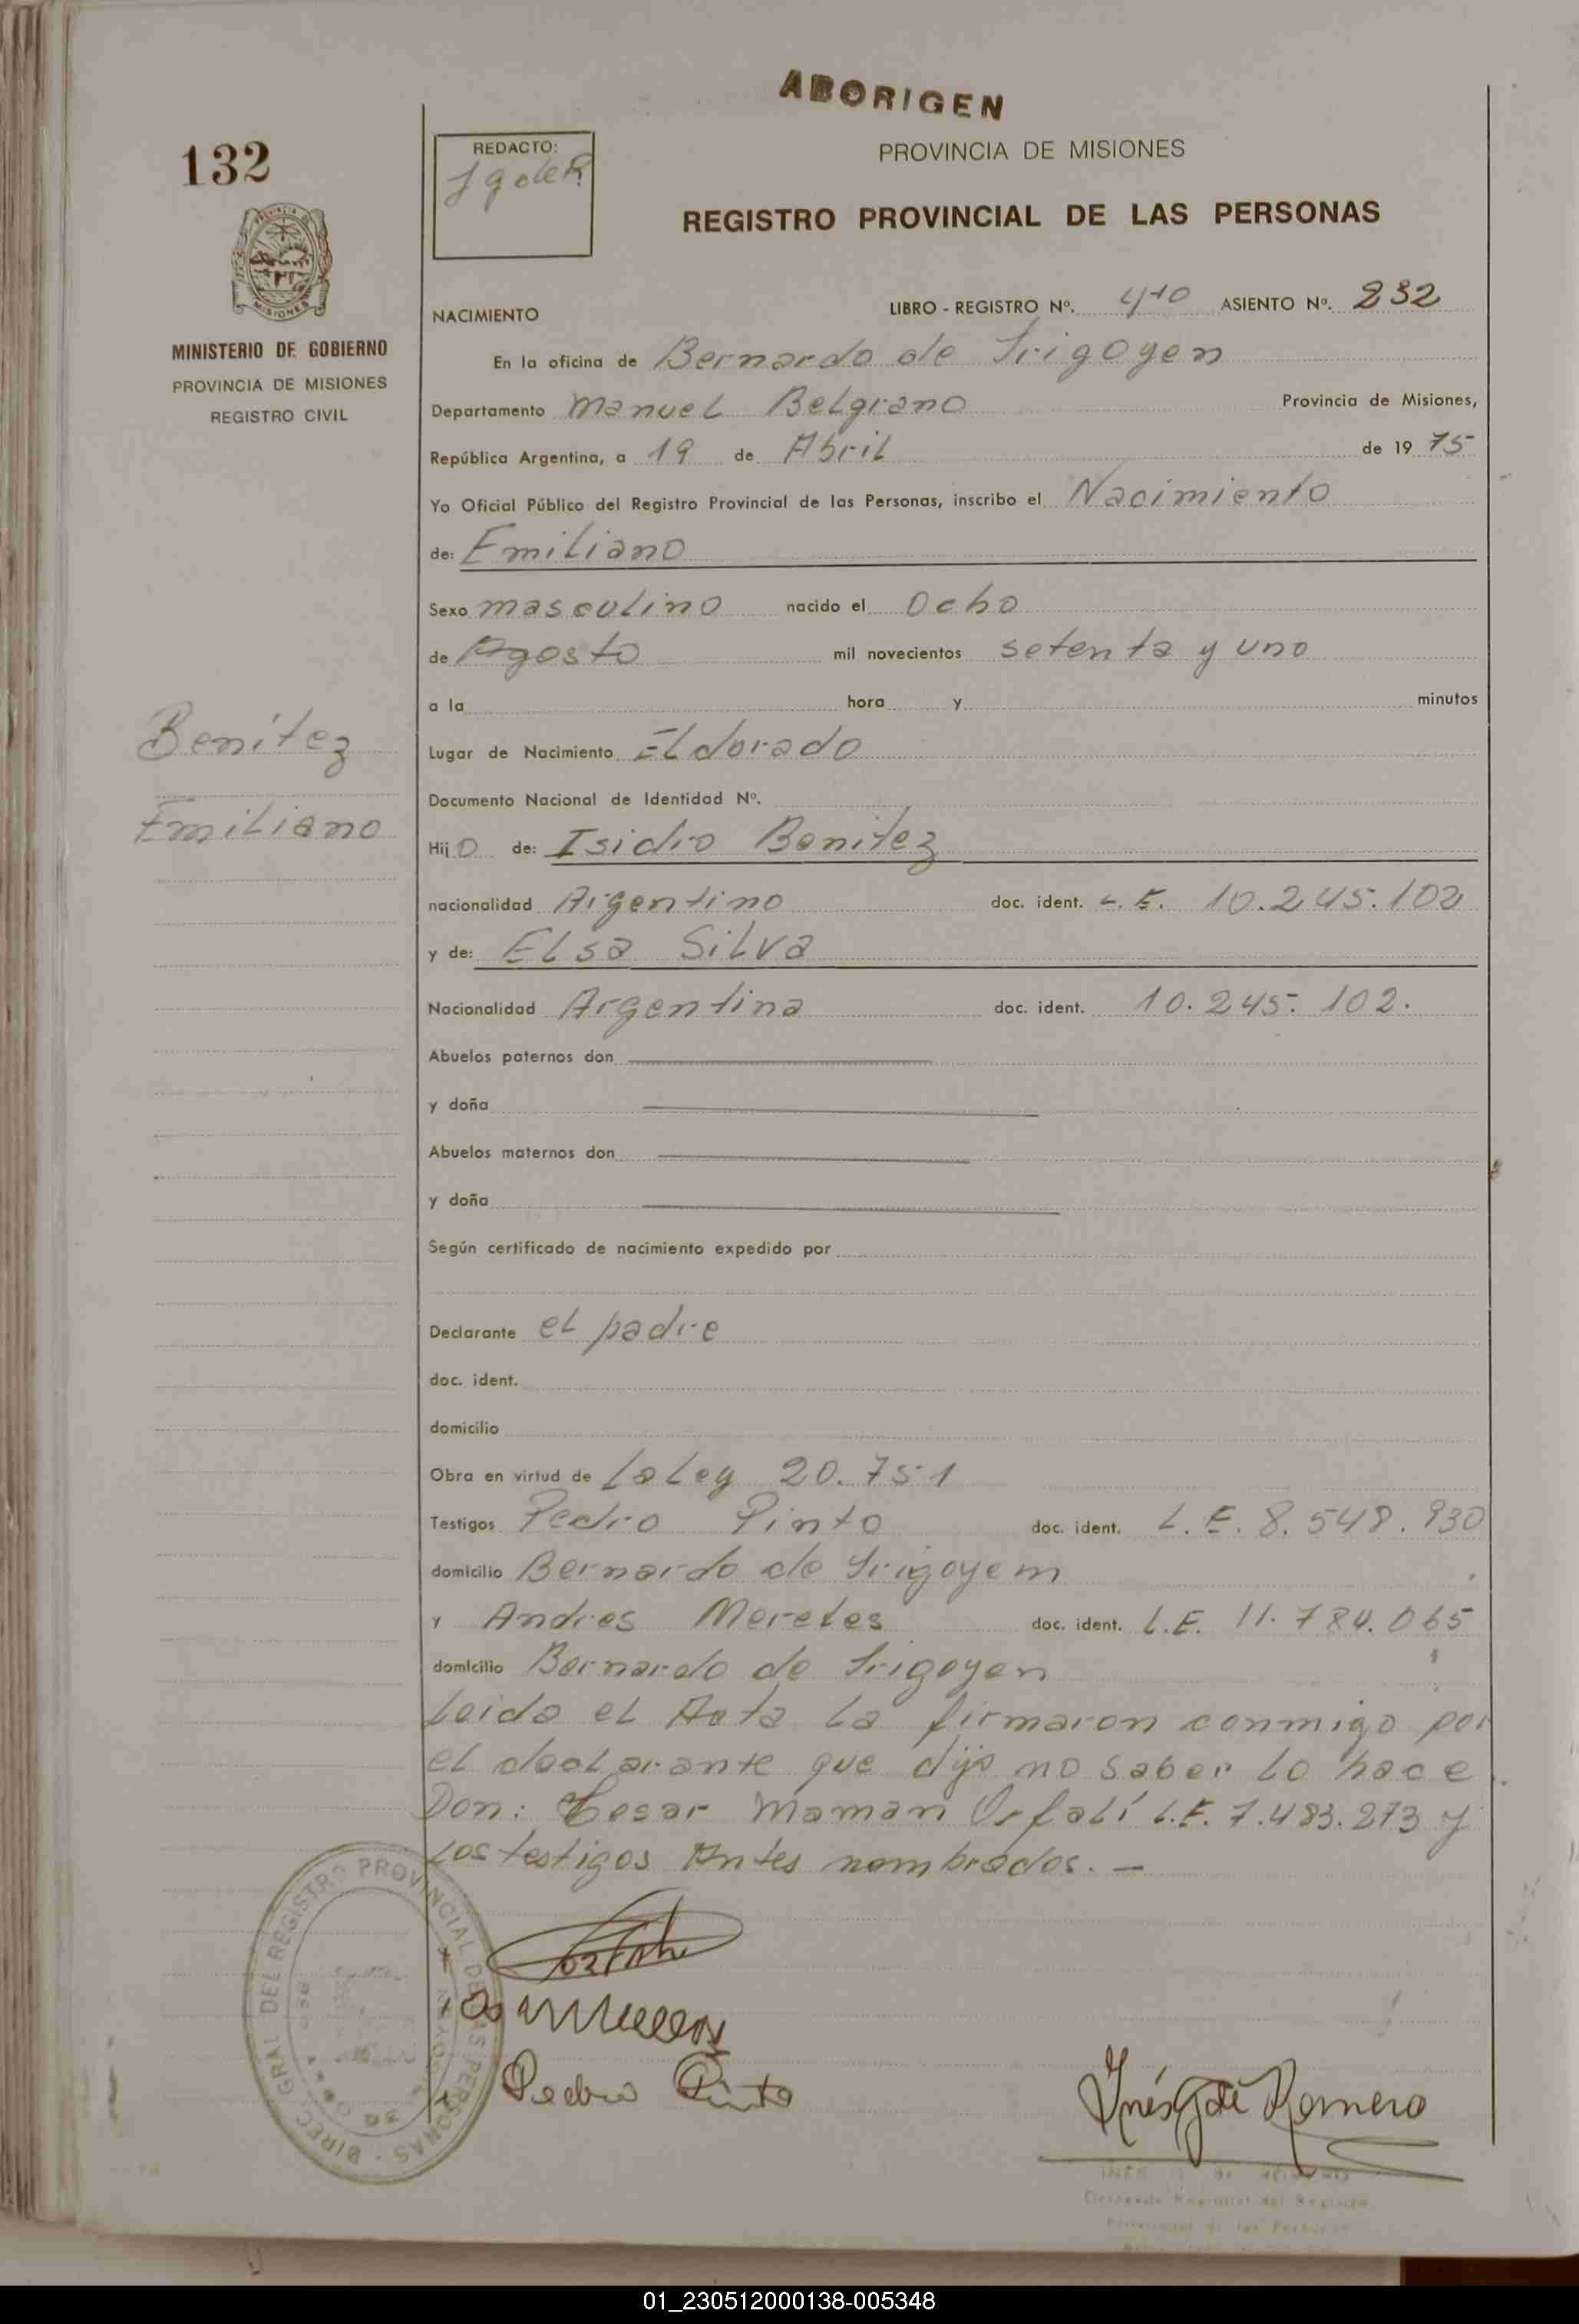 ABORIGEN
132
REDACTO:
PROVINCIA DE MISIONES
REGISTRO PROVINCIAL DE LAS PERSONAS
MISIONES
MINISTERIO DE GOBIERNO
PROVINCIA DE MISIONES
REGISTRO CIVIL
NACIMIENTO
LIBRO - REGISTRO Nº. ASIENTO Nº. 232
En la oficina de Bernardo de Irigoyen
Departamento Manuel Belgrano Provincia de Misiones,
República Argentina, a 19 de Abril de 19 75
Yo Oficial Público del Registro Provincial de las Personas, inscribo el Nacimiento
de: Emiliano
Sexo masculino nacido el Ocho
de Agosto mil novecientos setenta y uno
a la hora y minutos
Benitez
Emiliano
Lugar de Nacimiento ELdorado
Documento Nacional de Identidad Nº.
Hijo de: Isidro Benitez
nacionalidad Argentino doc. ident. L.E. 10.245.102
y de: Elsa Silva
Nacionalidad Argentina doc. ident. 10.245.102.
Abuelos paternos don
y doña
Abuelos maternos don
y doña
Según certificado de nacimiento expedido por
Declarante el padre
doc. ident.
domicilio
Obra en virtud de la Ley 20.751
Testigos Pedro Pinto doc. ident. L.E. 8.548.930
domicilio Bernardo de Irigoyem
y Andres Meretes doc. ident. L.E. 11.784.065
domicilio Bernardo de Irigoyen
Leida el Acta La firmaron conmigo por
el declarante que dijo no saber lo hace
Don: Cesar Maman Orfali L.E. 7.483.273 y
Los testigos Antes nombrados. —
DIREC. GRAL. DEL REGISTRO PROVINCIAL DE LAS PERSONAS
Pedro Pinto
Inés G de Romero
01_230512000138-005348